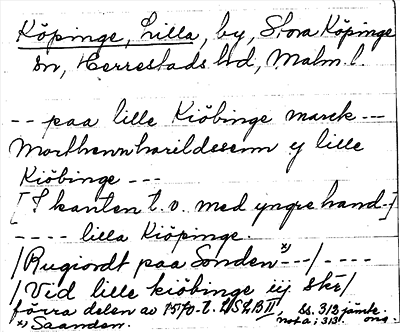 Köpinge, Lilla, by, Stora Köpinge
sn, Herrestads hd, Malm. l.
-- paa lille Kiöbinge marck ---
Morthenn harildssenn y lille
Kiöbinge ---
[I kanten t. v. med yngre hand-]
---- lilla Kiöpinge.
/Rugiordt paa Sonden x) ---/----
/Vid lille kiöbinge iij skē/
förra delen av 1570-t. LSLB II ss. 312 jämte
x) Saanden. not a. 313! ons.